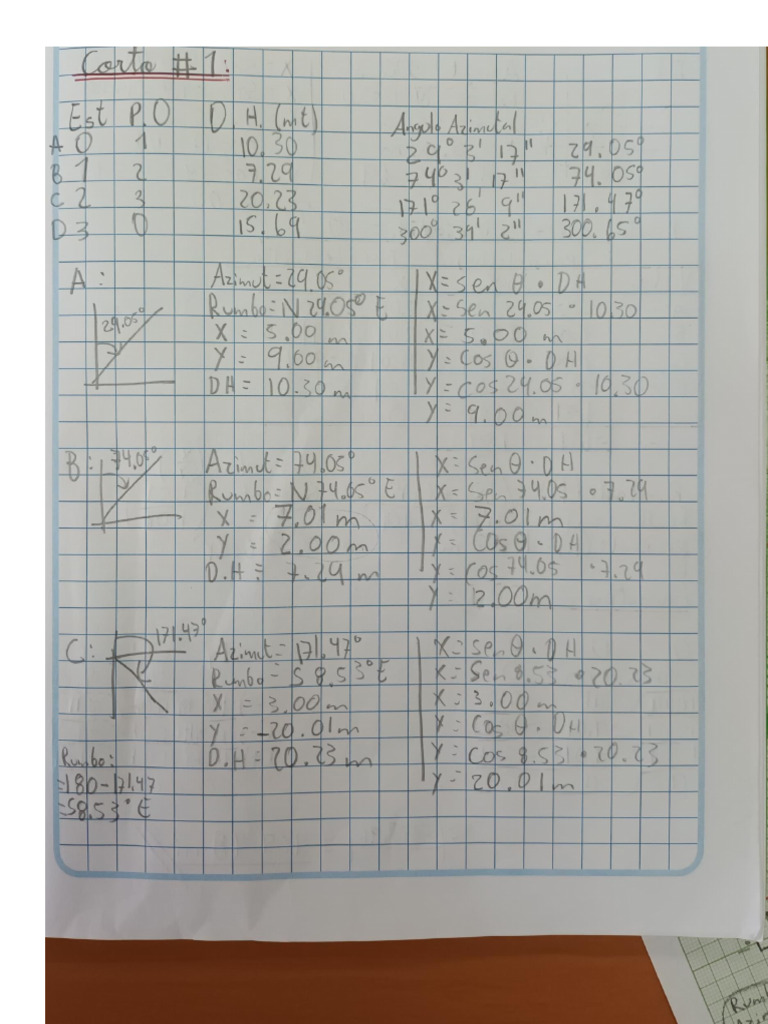 Corto #1:
Est P.O D.H. (mt) Angulo Azimutal
A 0 1 10.30 29° 3' 17" 29.05°
B 1 2 7.29 74° 3' 17" 74.05°
C 2 3 20.23 171° 26' 9" 171.47°
D 3 0 15.69 300° 39' 2" 300.65°
A: Azimut = 29.05° X = Sen θ · DH
29.05° Rumbo = N 29.05° E X = Sen 29.05 · 10.30
X = 5.00 m X = 5.00 m
Y = 9.00 m Y = Cos θ · DH
DH = 10.30 m Y = Cos 29.05 · 10.30
Y = 9.00 m
B: 74.05° Azimut = 74.05° X = Sen θ · DH
Rumbo = N 74.05° E X = Sen 74.05 · 7.29
X = 7.01 m X = 7.01 m
Y = 2.00 m Y = Cos θ · DH
D.H = 7.29 m Y = Cos 74.05 · 7.29
Y = 2.00 m
C: 171.47° Azimut = 171.47° X = Sen θ · DH
Rumbo = S 8.53° E X = Sen 8.53 · 20.23
X = 3.00 m X = 3.00 m
Y = -20.01 m Y = Cos θ · DH
Rumbo: D.H = 20.23 m Y = Cos 8.53 · 20.23
=180-171.47 Y = 20.01 m
=S8.53° E